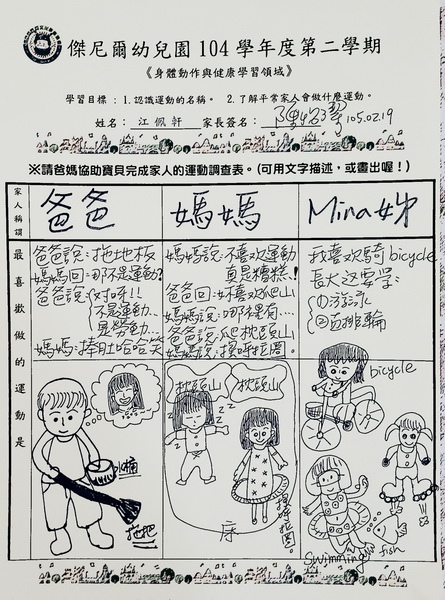 傑尼爾幼兒園104學年度第二學期
《身體動作與健康學習領域》
學習目標：1.認識運動的名稱。 2.了解平常家人會做什麼運動。
姓名：江佩軒 家長簽名： 105.02.19
※請爸媽協助寶貝完成家人的運動調查表。(可用文字描述，或畫出喔！)
家人稱謂
爸爸
媽媽
Mina姊
最喜歡做的運動是
爸爸說：拖地板
媽媽回：哪不是運動?
爸爸說：對呀!!
不是運動、
是勞動…
媽媽：捧肚哈哈笑
媽媽說：不喜欢運動
真是糟糕!
爸爸回：妳喜欢爬山
媽媽說：哪裡有…
爸爸說：爬枕頭山
媽媽說：搖呼拉圈。
我喜欢騎bicycle
長大还要学：
①游泳
②直排輪
水桶
拖把
枕頭山
枕頭山
床
搖呼拉圈。
bicycle
swimming
fish